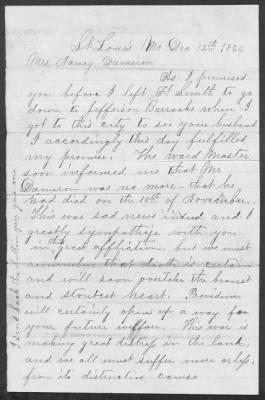 St Louis Mo Dec 12th 1864
Mrs Nancy Dameron
As I promised
you before I left Ft Smith to go
down to Jefferson Barracks when I
got to this city to see your husband
I accordingly this day fulfilled
my promise. The ward Master
soon informed me that Mr
Dameron was no more that he
had died on the 10th of November.
This was sad news indeed and I
greatly sympathize with you
in this great affliction but we must
remember that death is certain
and will soon overtake the bravest
and stoutest heart. Providence
will certainly open up a way for
your future welfare. This war is
making great distress in the land,
and we all must suffer more or less
from its destructive course
I send back the letter you gave me